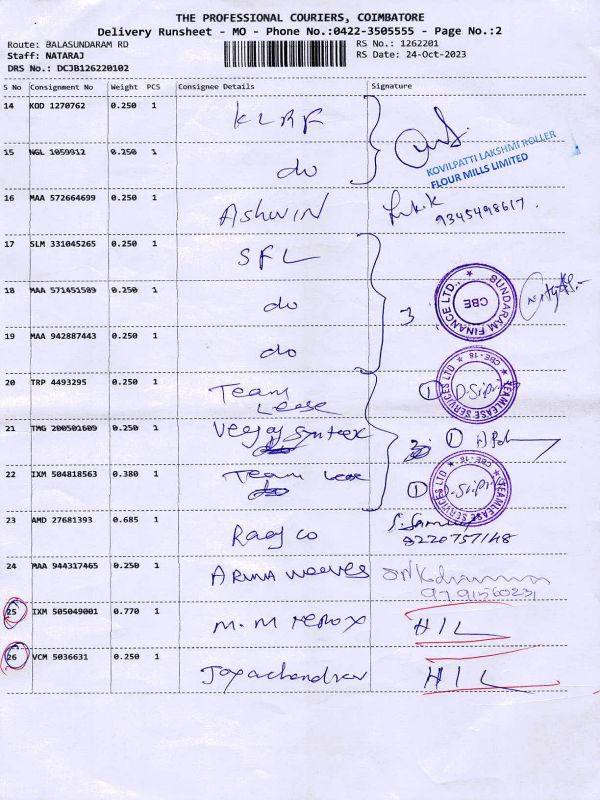 THE PROFESSIONAL COURIERS, COIMBATORE
Delivery Runsheet - MO - Phone No.:0422-3505555 - Page No.:2
Route: BALASUNDARAM RD RS No.: 1262201
Staff: NATARAJ RS Date: 24-Oct-2023
DRS No.: DCJB126220102
S No Consignment No Weight PCS Consignee Details Signature
14 KOD 1270762 0.250 1 KLRF
KOVILPATTI LAKSHMI ROLLER
FLOUR MILLS LIMITED
15 NGL 1059912 0.250 1 do
16 MAA 572664699 0.250 1 ASHWIN
9345498617.
17 SLM 331045265 0.250 1 SFL
18 MAA 571451589 0.250 1 do 3
SUNDARAM FINANCE LTD., CBE
19 MAA 942887443 0.250 1 do
20 TRP 4493295 0.250 1 Team Lease 1
TEAMLEASE SERVICES LTD CBE-18
21 TMG 200501609 0.250 1 1
22 IXM 504818563 0.380 1 Team Lease 1
TEAMLEASE SERVICES LTD CBE-18
23 AMD 27681393 0.685 1
8220757148
24 MAA 944317465 0.250 1
25 IXM 505049001 0.770 1 HIL
26 VCM 5036631 0.250 1 HIL